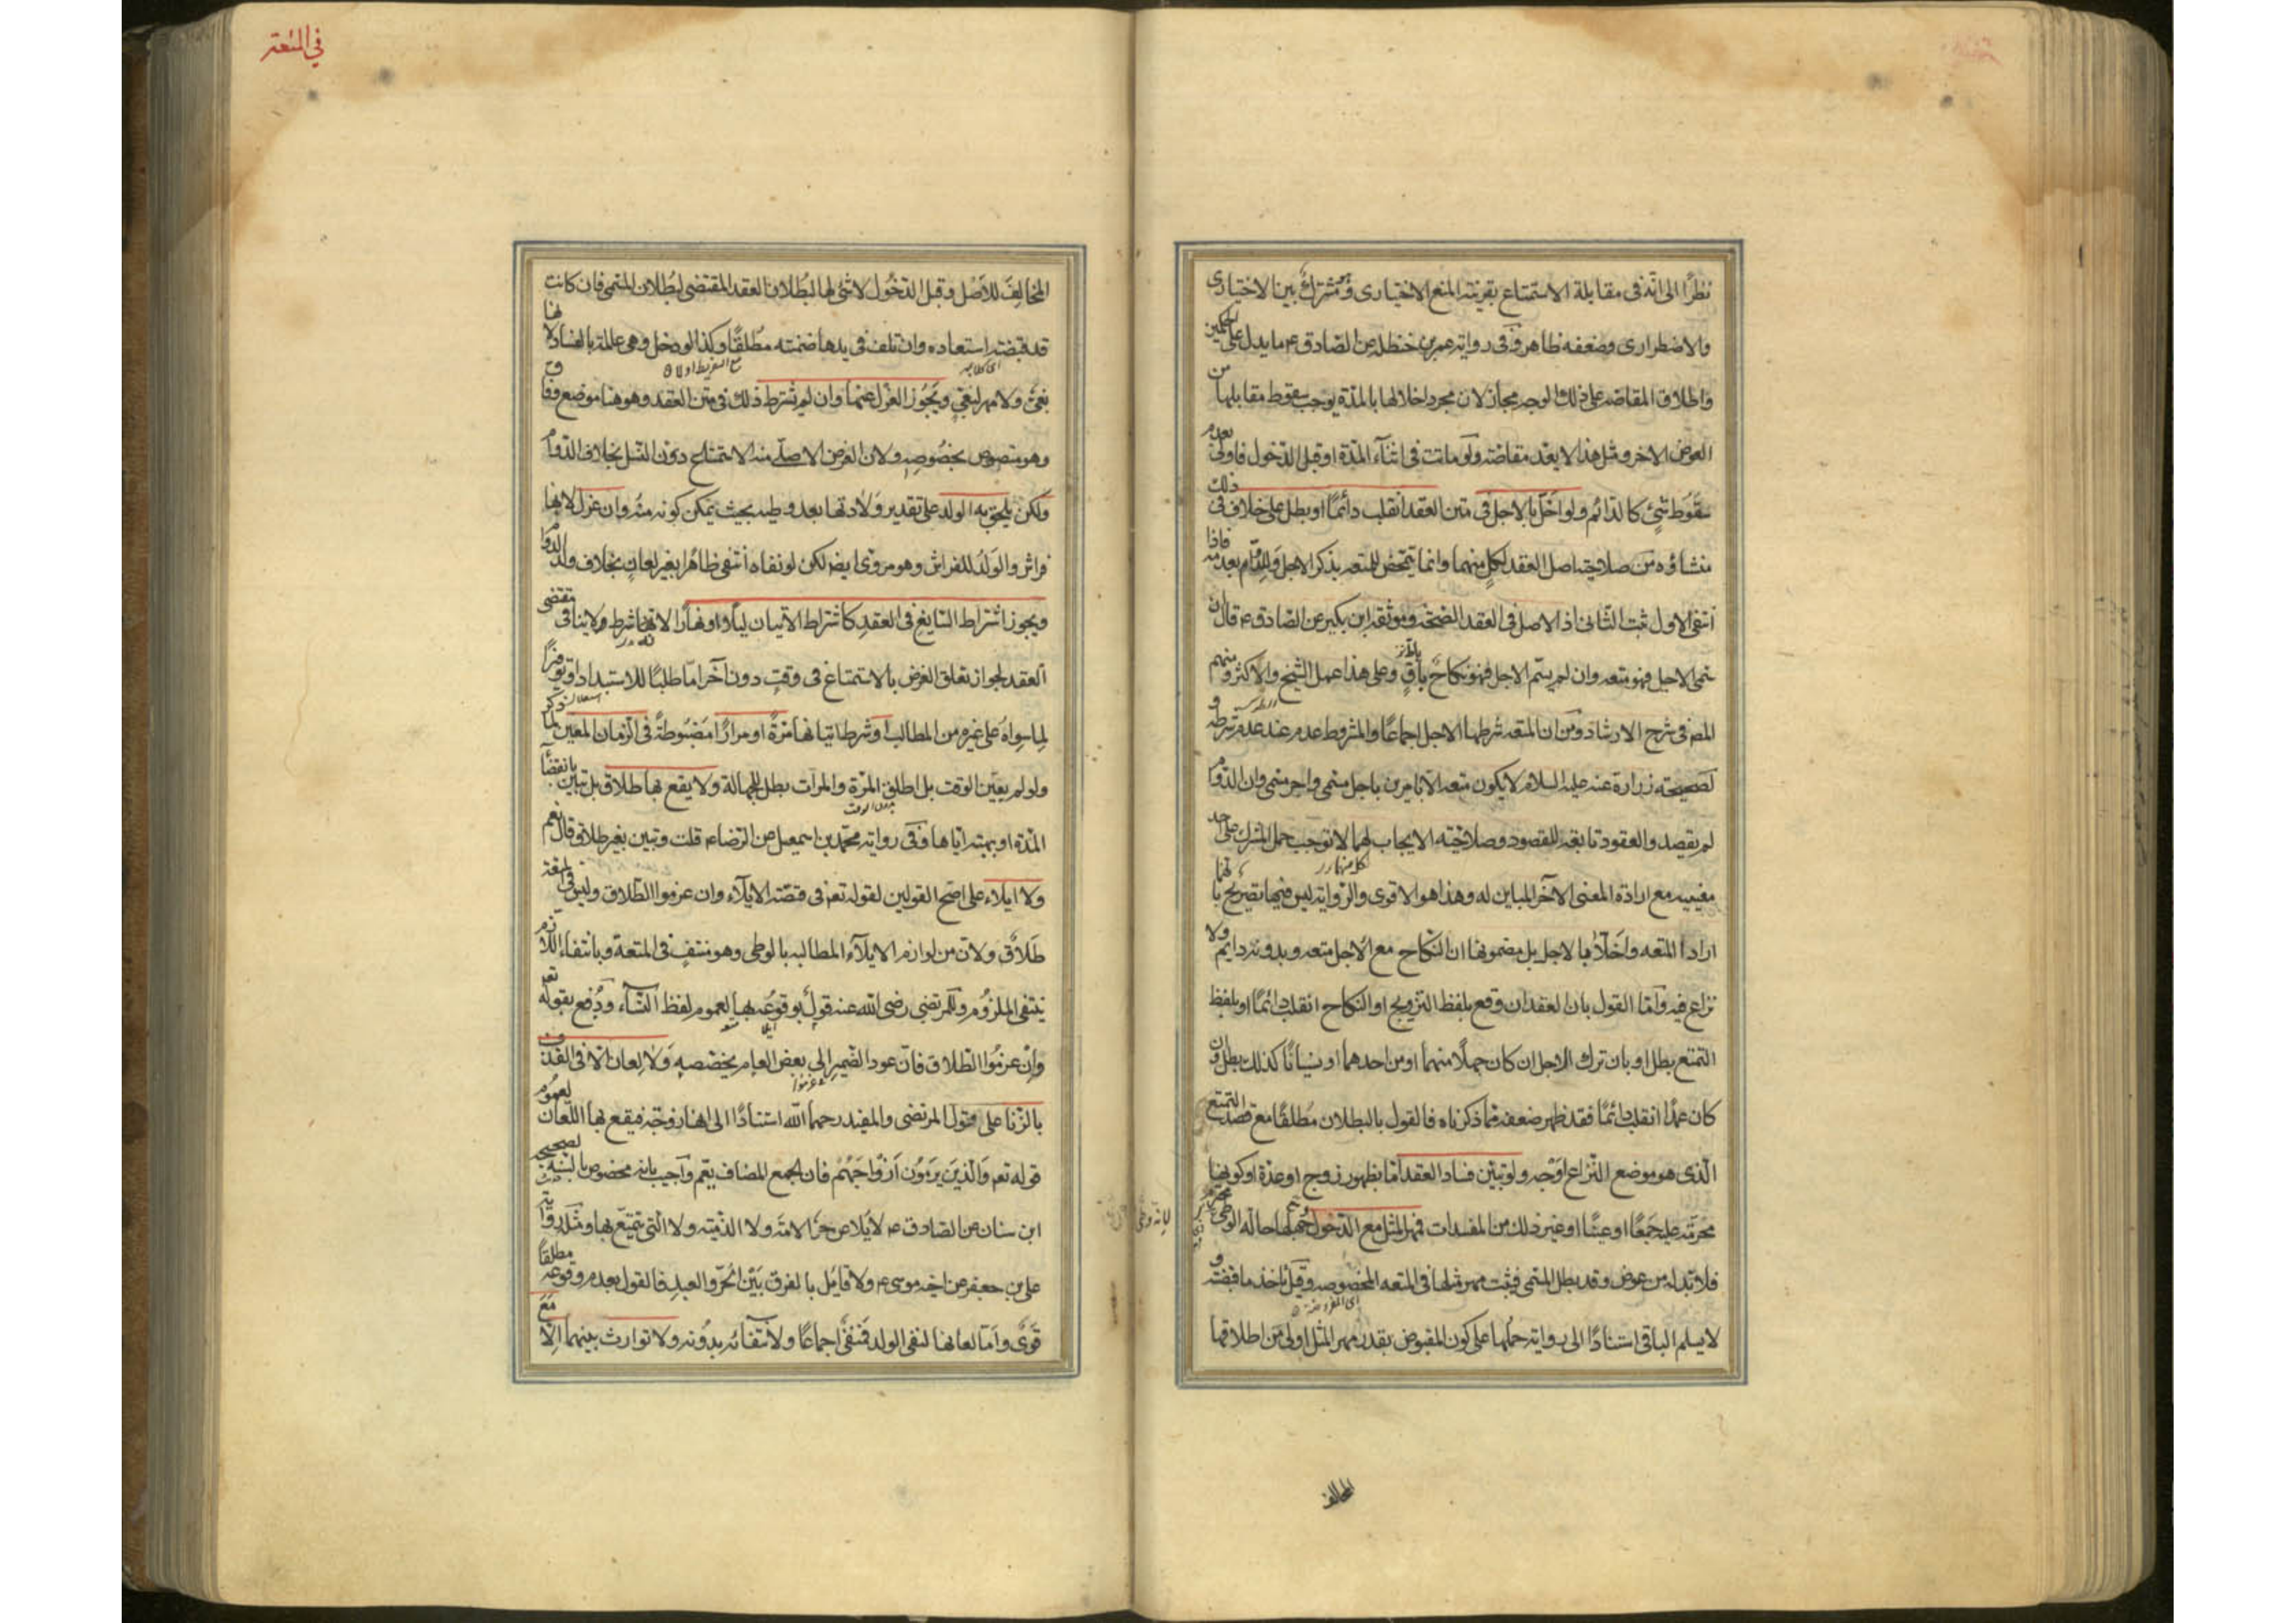 نظرًا الى انه فى مقابلة الاستمتاع بقرينة المنع الاختيارى وهو مشترك بين الاختيارى
والاضطرارى وضعفه ظاهر وفى رواية عمر بن حنظله عن الصادق ع ما يدل على الحكمين
واطلاق المقاصه على ذلك الوجه مجاز لان مجرد اخلالها بالمدة يوجب سقوط مقابلها من
العوض الاخر ومثل هذا لا يعد مقاصة ولو ماتت فى اثناء المدة او قبل الدخول فاولى بعدم
سقوط شئ كالدائم ولو اخل بالاجل فى متن العقد انقلب دائمًا او بطل على خلاف فى ذلك
منشاؤه من صلاحية اصل العقد لكل منهما وانما يتمحض للمتعه بذكر الاجل وللدوام بعدمه فاذا
انتفى الاول ثبت الثانى اذ الاصل فى العقد الصحة وموثقة ابن بكير عن الصادق ع قال ان
سمى الاجل فهو متعه وان لم يسم الاجل فهو نكاح باق وعلى هذا عمل الشيخ والاكثر ومنهم
المص فى شرح الارشاد ومن ان المتعه شرطها الاجل اجماعًا والمشروط عدم عند عدم شرطه و
لصحيحة زرارة عنه عليه السلام لا يكون متعه الا بامرين باجل مسمى واجر مسمى وان الدوام
لم يقصد والعقود تابعه للقصود وصلاحيته الايجاب لهما لا توجب حمل المشترك على احد
معنييه مع ارادة المعنى الآخر المباين له وهذا هو الاقوى والرواية ليس فيها تصريح بانهما
ارادا المتعه واخلا بالاجل بل مضمونها ان النكاح مع الاجل متعه وبدونه دايم ولا
نزاع فيه وأما القول بان العقد ان وقع بلفظ التزويج او النكاح انقلب دائمًا او بلفظ
التمتع بطل او بان ترك الاجل ان كان جهلًا منهما او من احدهما او نسيانًا كذلك بطل وان
كان عمدًا انقلب دائمًا فقد ظهر ضعفه مما ذكرناه فالقول بالبطلان مطلقًا مع قصد التمتع
الذى هو موضع النزاع اوجه ولو تبين فساد العقد اما بظهور زوج او عدة او كونها
محرمة عليه جمعًا او عينًا او غير ذلك من المفسدات فمهر المثل مع الدخول جهلها حالة الوطى
فلا بد له من عوض وقد بطل المسمى فيثبت مهر مثلها فى المتعه المخصوصه وقيل تاخذ ما قبضته و
لا يسلم الباقى استنادًا الى رواية حملها على كون المقبوض بقدر مهر المثل اولى من اطلاقها
المخالف
فى المتعة
المخالف للاصل وقبل الدخول لا شئ لها لبطلان العقد المقتضى لبطلان المسمى فان كانت
قد قبضته استعاده وان تلف فى يدها ضمنته مطلقًا وكذا لو دخل وهى عالمة بالفساد لانها
بغى ولا مهر لبغى ويجوز العزل عنها وان لم يشترط ذلك فى متن العقد وهو هنا موضع وفاق
وهو منصوص بخصوصه ولان الغرض الاصلى منه الاستمتاع دون النسل بخلاف الدوام
ولكن يلحق به الولد على تقدير ولادتها بعد وطيه بحيث يمكن كونه منه وان عزل لانها
فراش والولد للفراش وهو مروى ايضا لكن لو نفاه انتفى ظاهرًا بغير لعان بخلاف ولد الدوام
ويجوز اشتراط السايغ فى العقد كاشتراط الاتيان ليلًا او نهارًا لانه شرط ولا ينافى مقتضى
العقد لجواز تعلق الغرض بالاستمتاع فى وقت دون آخر اما طلبًا للاستبداد او توفيرًا
لما سواه على غيره من المطالب او شرط اتيانها مرةً او مرارًا مضبوطة فى الزمان المعين لما ذكر
ولو لم يعين الوقت بل اطلق المرة والمرات بطل للجهالة ولا يقع بها طلاق بل تبين بانقضاء
المدة او بهبته اياها وفى رواية محمد بن اسمعيل عن الرضا ع قلت وتبين بغير طلاق قال نعم
ولا ايلاء على اصح القولين لقوله تعم فى قصة الايلاء وان عزموا الطلاق وليس فى المتعة
طلاق ولان من لوازم الايلاء المطالبه بالوطى وهو منتف فى المتعة وبانتفاء اللازم
ينتفى الملزوم وللمرتضى رضى الله عنه قول بوقوعه بها لعموم لفظ النساء ودفع بقوله تعم
وان عزموا الطلاق فان عود الضمير الى بعض العام يخصصه ولا لعان الا فى القذف
بالزنا على قول المرتضى والمفيد رحمهما الله استنادًا الى انها زوجة فيقع بها اللعان لعموم
قوله تعم والذين يرمون ازواجهم فان الجمع المضاف يعم واجيب بانه مخصوص بالسنه لصحيحه
ابن سنان عن الصادق ع لا يلاعن الحر الامة ولا الذميه ولا التى تتمتع بها ومثله رواية
على بن جعفر عن اخيه موسى ع ولا قايل بالفرق بين الحر والعبد فالقول بعدم وقوعه مطلقًا
قوى واما لعانها لنفى الولد فمنفى اجماعًا ولانتفائه بدونه ولا توارث بينهما الا مع